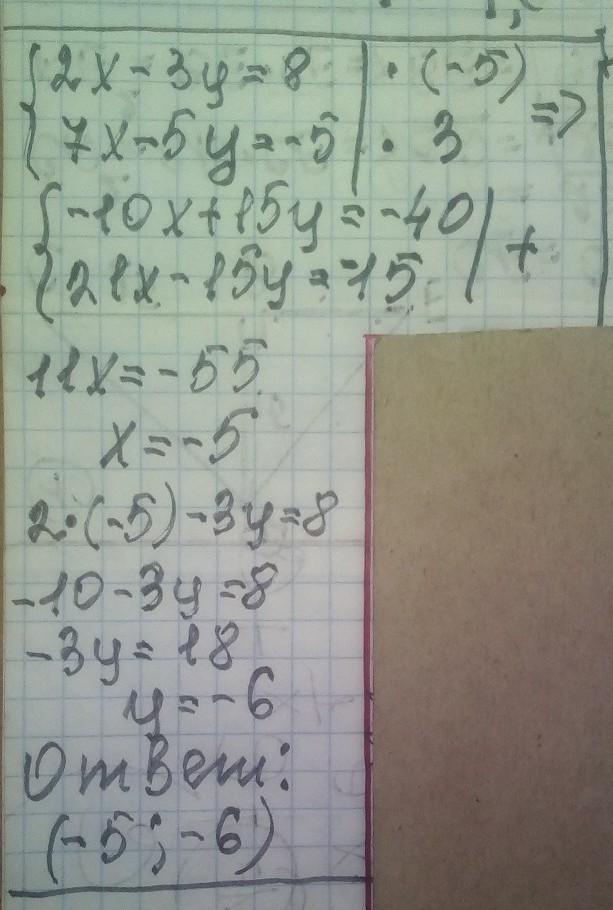 {2x-3y=8 | · (-5)
{7x-5y=-5 | · 3 =>
{-10x+15y=-40 | +
{21x-15y=-15
11x=-55
x=-5
2·(-5)-3y=8
-10-3y=8
-3y=18
y=-6
Ответ:
(-5;-6)